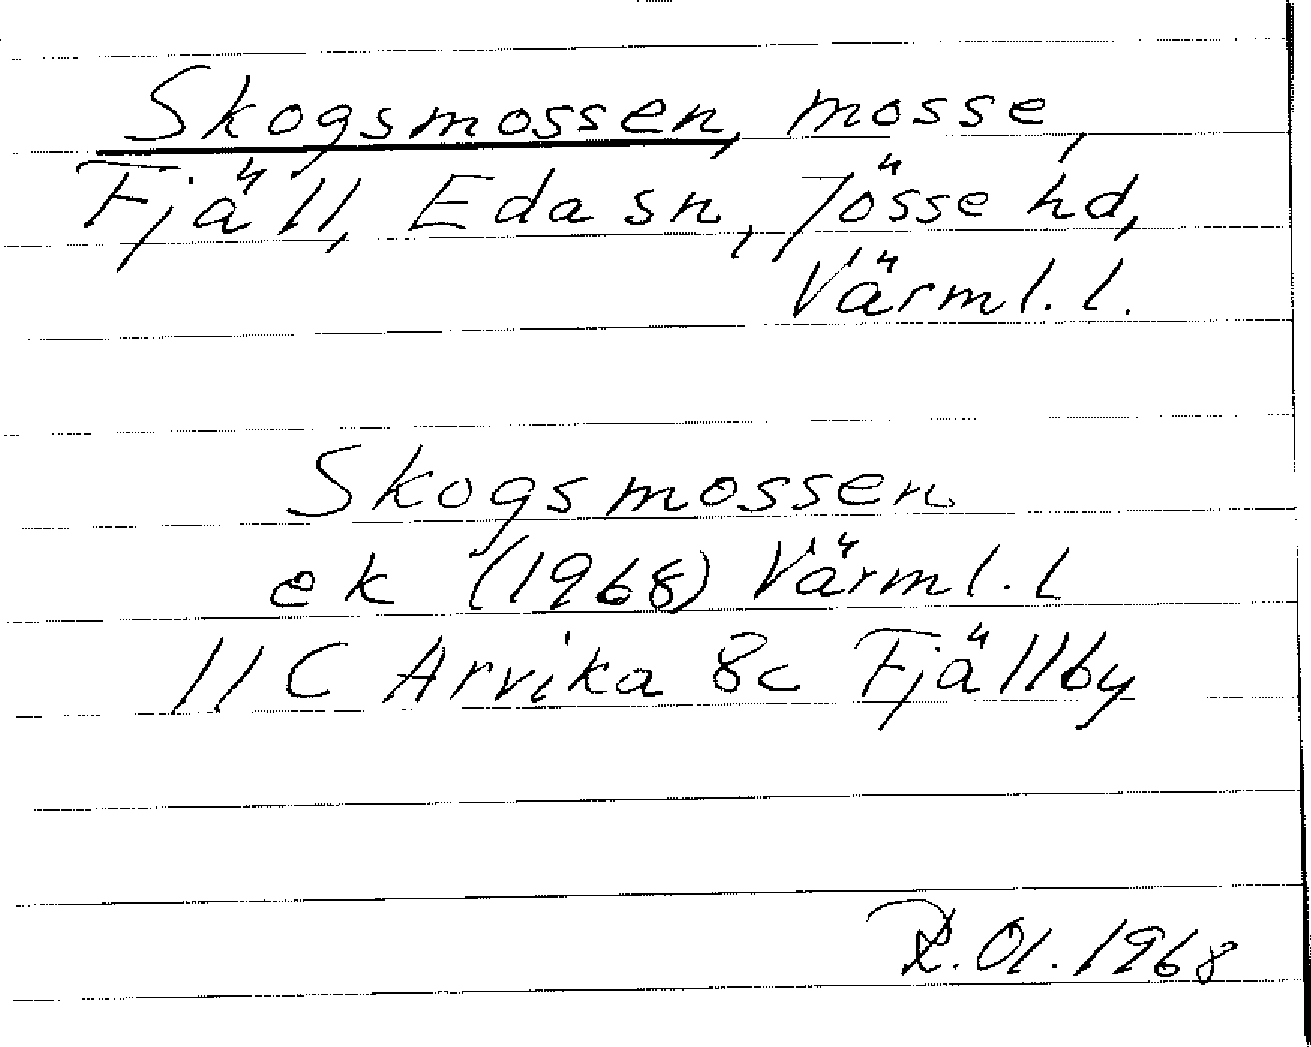 Skogsmossen, mosse,
Fjäll, Eda sn, Jösse hd,
Värml. l.
Skogsmossen
ek (1968) Värml. l
11 C Arvika 8c Fjällby
R. Ol. 1968